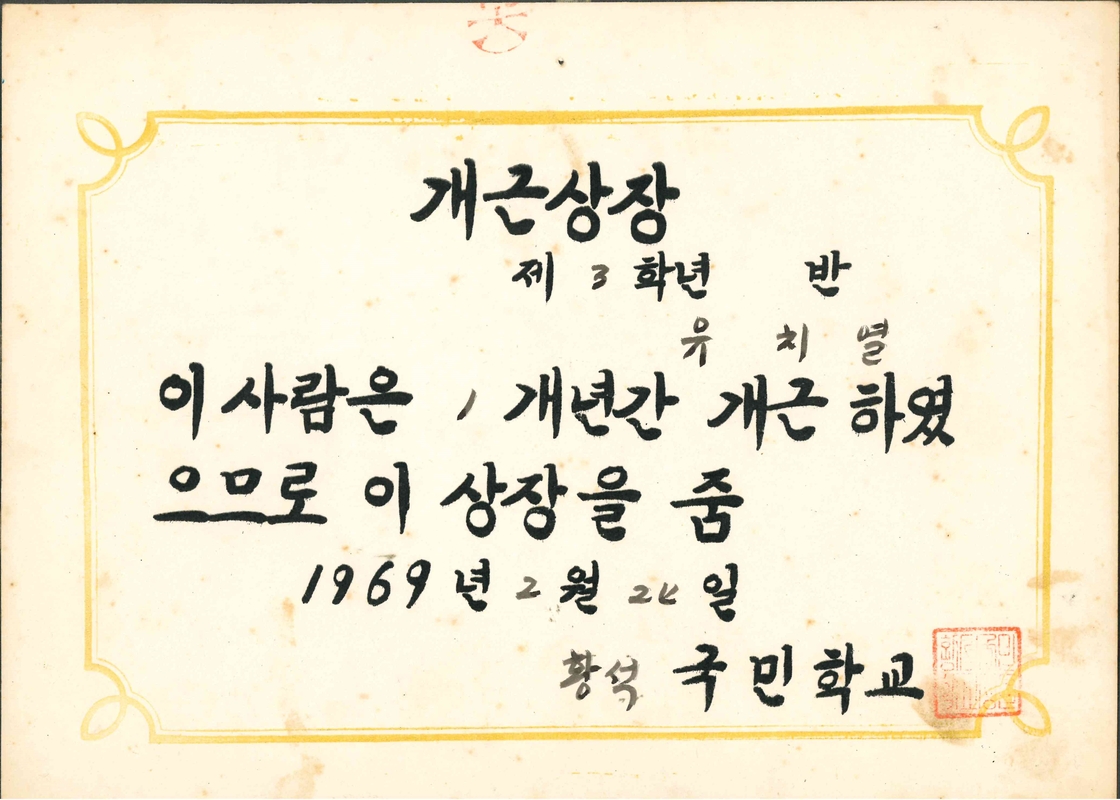 개근상장
제 3 학년 반
유 치 열
이 사람은 1 개년간 개근 하였
으므로 이 상장을 줌
1969 년 2 월 24 일
황석 국민학교